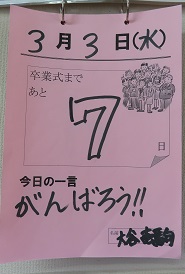 3月3日(水)
卒業式まで
あと
7
日
今日の一言
がんばろう!!
大谷